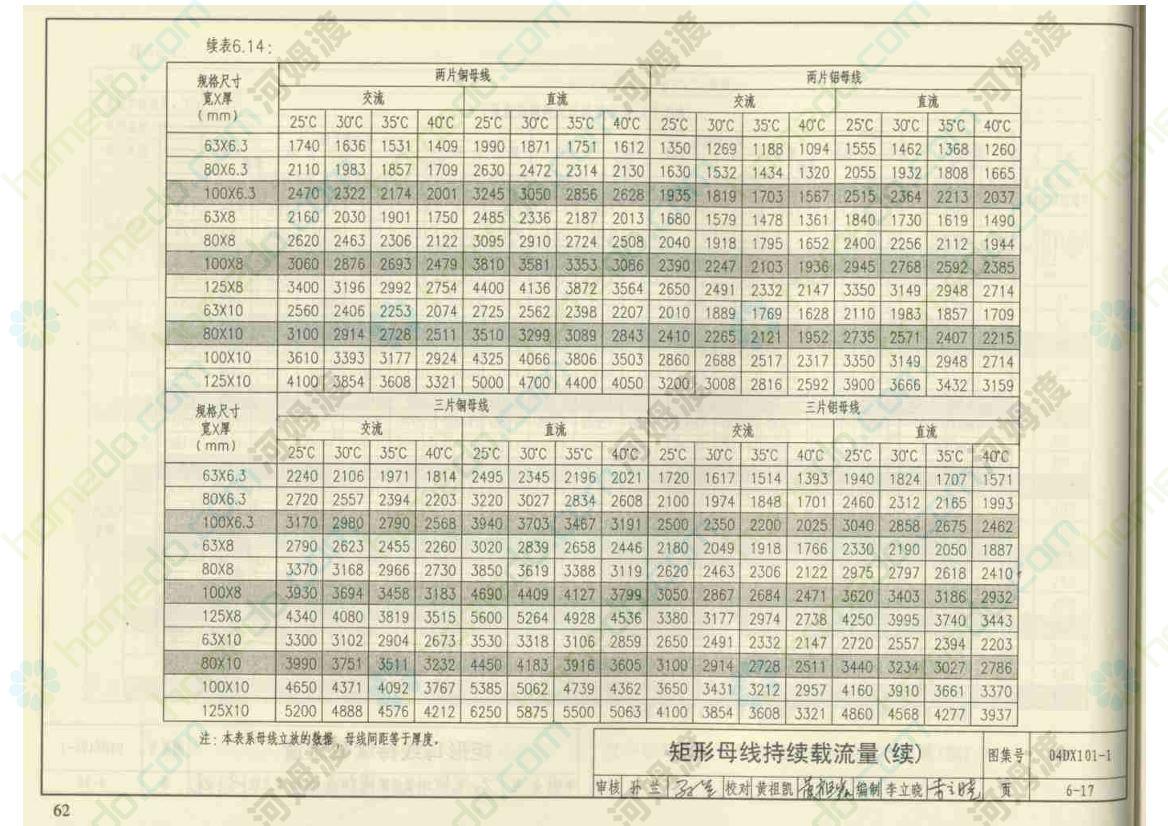 续表6.14:
规格尺寸 宽X厚 (mm) 两片铜母线 两片铝母线
交流 直流 交流 直流
25℃ 30℃ 35℃ 40℃ 25℃ 30℃ 35℃ 40℃ 25℃ 30℃ 35℃ 40℃ 25℃ 30℃ 35℃ 40℃
63X6.3 1740 1636 1531 1409 1990 1871 1751 1612 1350 1269 1188 1094 1555 1462 1368 1260
80X6.3 2110 1983 1857 1709 2630 2472 2314 2130 1630 1532 1434 1320 2055 1932 1808 1665
100X6.3 2470 2322 2174 2001 3245 3050 2856 2628 1935 1819 1703 1567 2515 2364 2213 2037
63X8 2160 2030 1901 1750 2485 2336 2187 2013 1680 1579 1478 1361 1840 1730 1619 1490
80X8 2620 2463 2306 2122 3095 2910 2724 2508 2040 1918 1795 1652 2400 2256 2112 1944
100X8 3060 2876 2693 2479 3810 3581 3353 3086 2390 2247 2103 1936 2945 2768 2592 2385
125X8 3400 3196 2992 2754 4400 4136 3872 3564 2650 2491 2332 2147 3350 3149 2948 2714
63X10 2560 2406 2253 2074 2725 2562 2398 2207 2010 1889 1769 1628 2110 1983 1857 1709
80X10 3100 2914 2728 2511 3510 3299 3089 2843 2410 2265 2121 1952 2735 2571 2407 2215
100X10 3610 3393 3177 2924 4325 4066 3806 3503 2860 2688 2517 2317 3350 3149 2948 2714
125X10 4100 3854 3608 3321 5000 4700 4400 4050 3200 3008 2816 2592 3900 3666 3432 3159
规格尺寸 宽X厚 (mm) 三片铜母线 三片铝母线
交流 直流 交流 直流
25℃ 30℃ 35℃ 40℃ 25℃ 30℃ 35℃ 40℃ 25℃ 30℃ 35℃ 40℃ 25℃ 30℃ 35℃ 40℃
63X6.3 2240 2106 1971 1814 2495 2345 2196 2021 1720 1617 1514 1393 1940 1824 1707 1571
80X6.3 2720 2557 2394 2203 3220 3027 2834 2608 2100 1974 1848 1701 2460 2312 2165 1993
100X6.3 3170 2980 2790 2568 3940 3703 3467 3191 2500 2350 2200 2025 3040 2858 2675 2462
63X8 2790 2623 2455 2260 3020 2839 2658 2446 2180 2049 1918 1766 2330 2190 2050 1887
80X8 3370 3168 2966 2730 3850 3619 3388 3119 2620 2463 2306 2122 2975 2797 2618 2410
100X8 3930 3694 3458 3183 4690 4409 4127 3799 3050 2867 2684 2471 3620 3403 3186 2932
125X8 4340 4080 3819 3515 5600 5264 4928 4536 3380 3177 2974 2738 4250 3995 3740 3443
63X10 3300 3102 2904 2673 3530 3318 3106 2859 2650 2491 2332 2147 2720 2557 2394 2203
80X10 3990 3751 3511 3232 4450 4183 3916 3605 3100 2914 2728 2511 3440 3234 3027 2786
100X10 4650 4371 4092 3767 5385 5062 4739 4362 3650 3431 3212 2957 4160 3910 3661 3370
125X10 5200 4888 4576 4212 6250 5875 5500 5063 4100 3854 3608 3321 4860 4568 4277 3937
注:本表系母线立放的数据,母线间距等于厚度.
矩形母线持续载流量(续) 图集号 04DX101-1
审核 孙兰 校对 黄祖凯 黄祖凯 编制 李立晓 李立晓 页 6-17
62
河姆渡
homedo.com